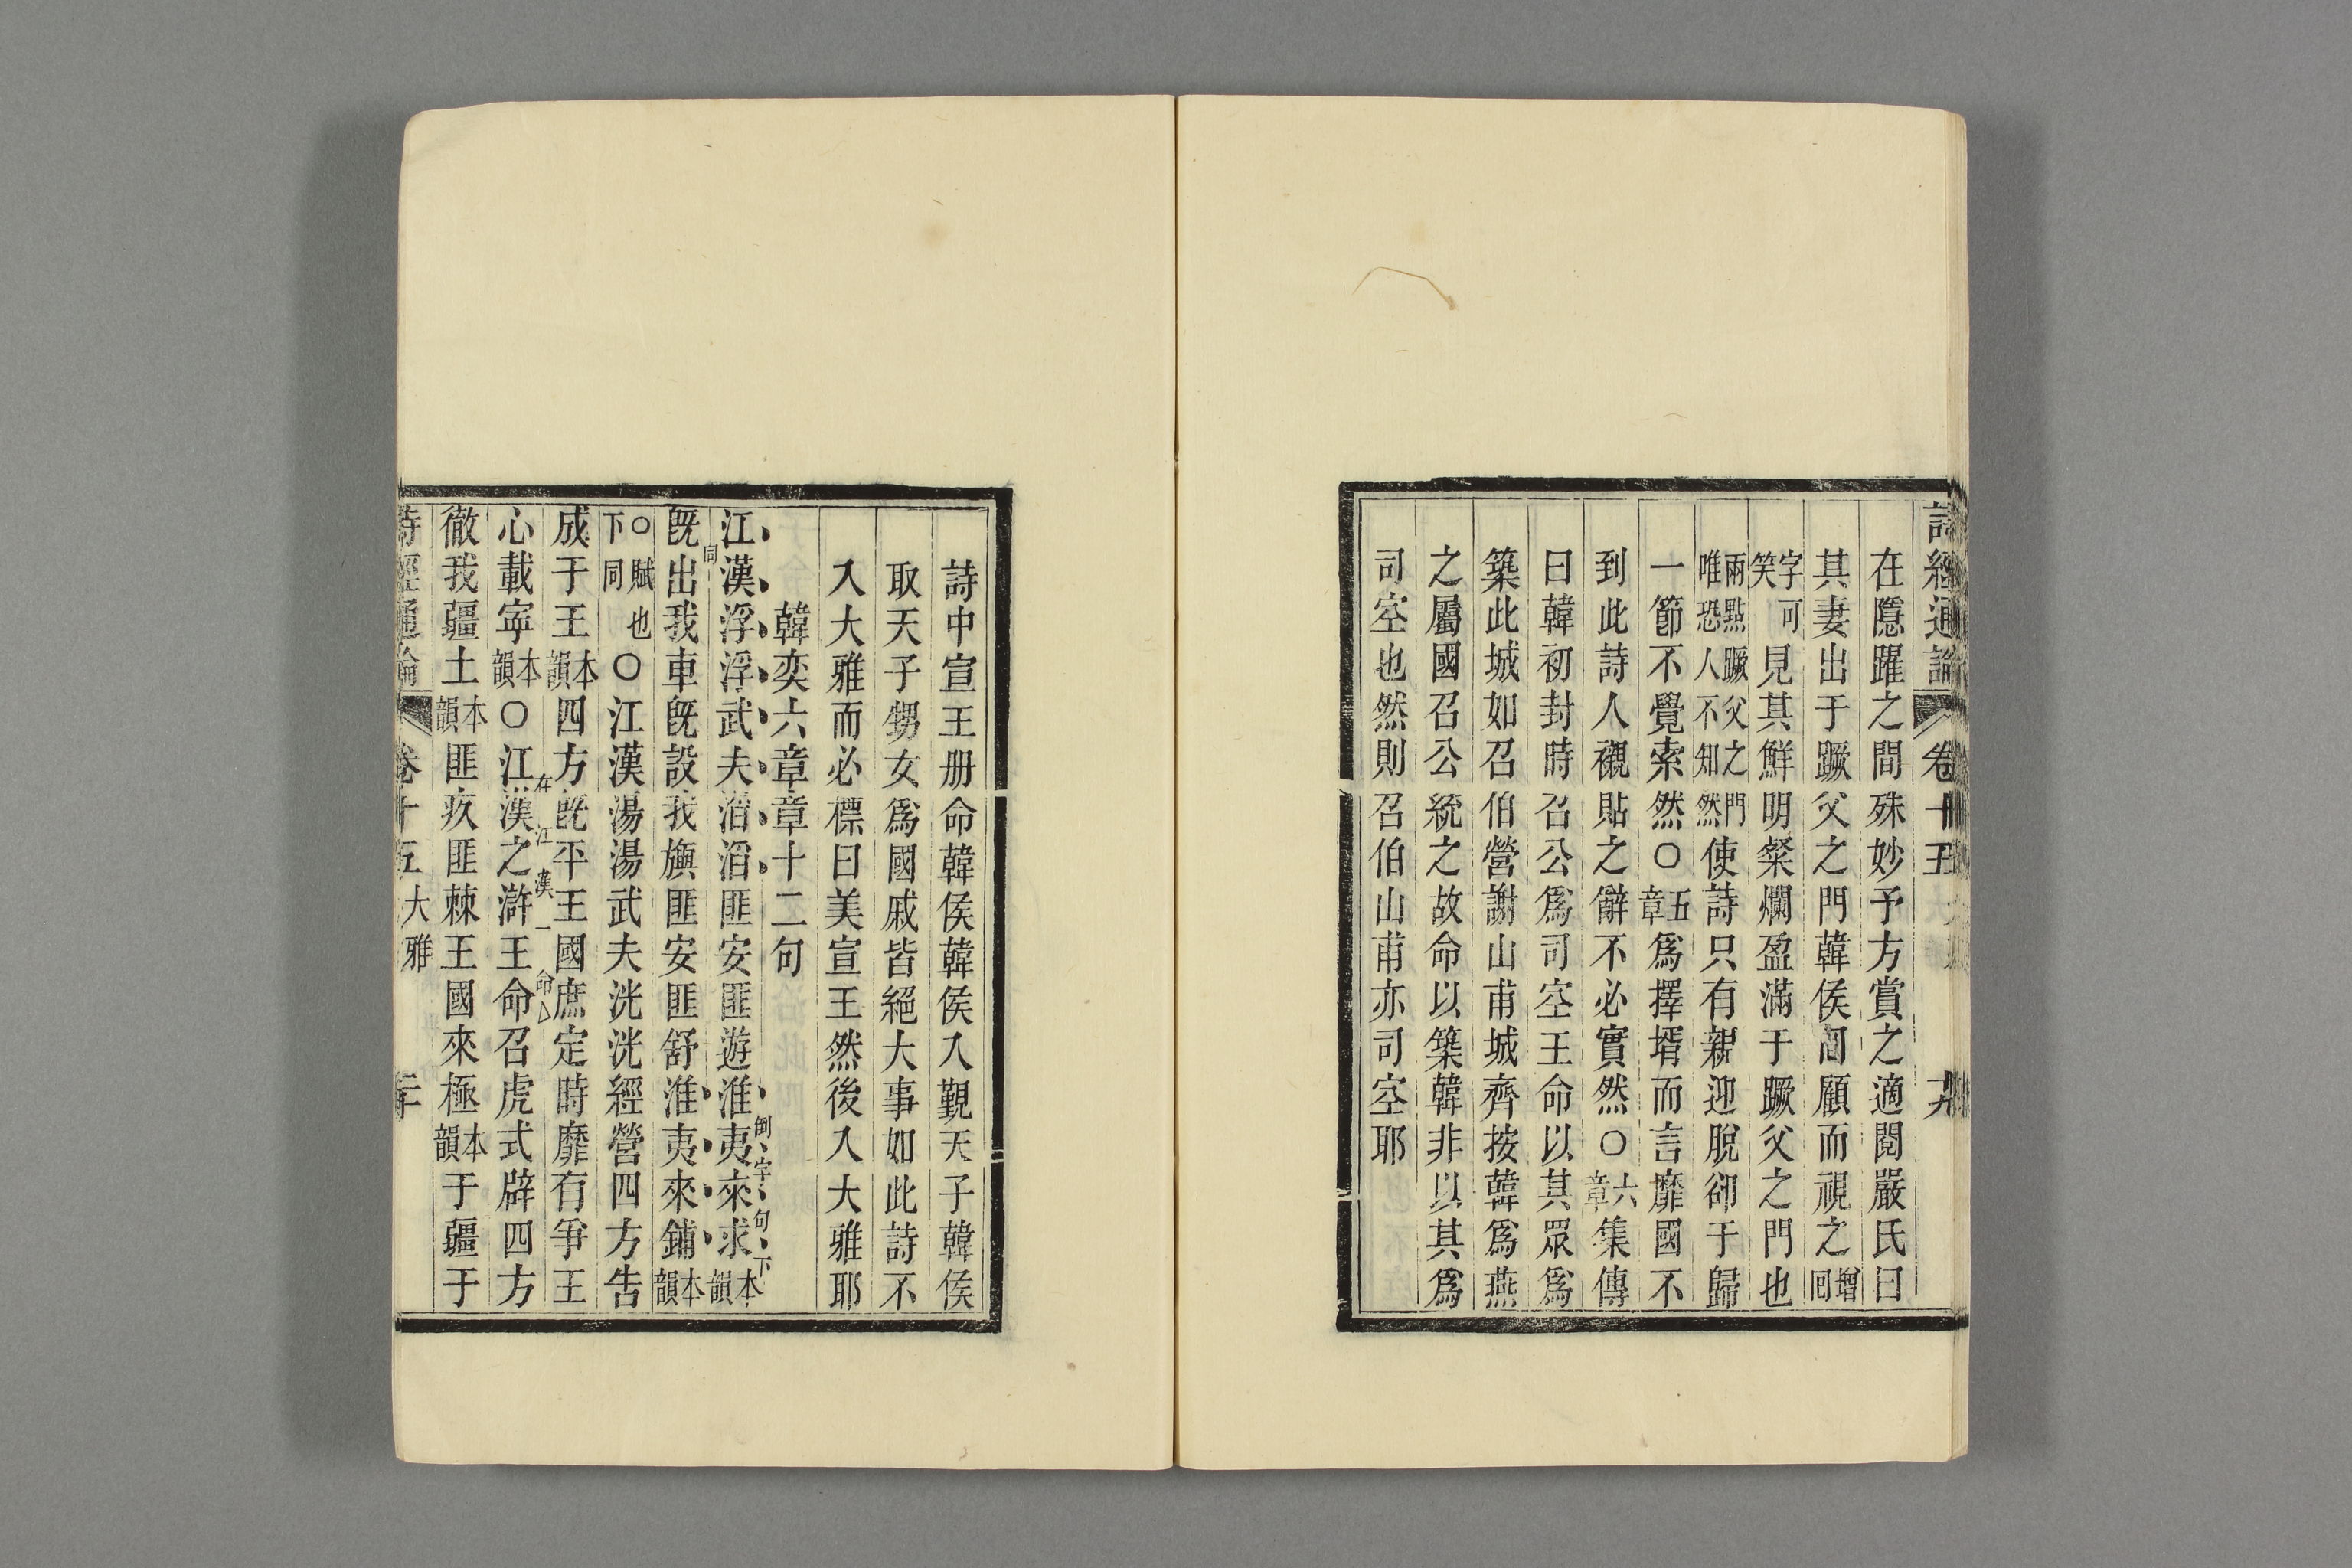 詩經通論 卷十五 十九
在隱躍之間殊妙予方賞之適閱嚴氏曰
其妻出于蹶父之門韓侯囬顧而視之增囘
字可笑見其鮮明粲爛盈滿于蹶父之門也
兩點蹶父之門唯恐人不知然使詩只有親迎脫卻于歸
一節不覺索然〇五章爲擇壻而言靡國不
到此詩人襯貼之辭不必實然〇六章集傳
曰韓初封時召公爲司空王命以其眾爲
築此城如召伯營謝山甫城齊按韓爲燕
之屬國召公統之故命以築韓非以其爲
司空也然則召伯山甫亦司空耶
詩中宣王册命韓侯韓侯入覲天子韓侯
取天子甥女爲國戚皆絕大事如此詩不
入大雅而必標曰美宣王然後入大雅耶
韓奕六章章十二句
江漢浮浮武夫滔滔匪安匪遊淮夷來求本韻
倒字句下同
旣出我車旣設我旟匪安匪舒淮夷來鋪本韻
〇賦也下同〇江漢湯湯武夫洸洸經營四方告
成于王本韻四方旣平王國庶定時靡有爭王
在江漢一命△
心載寧本韻〇江漢之滸王命召虎式辟四方
徹我疆土本韻匪疚匪棘王國來極本韻于疆于
詩經通論 卷十五 大雅 二十